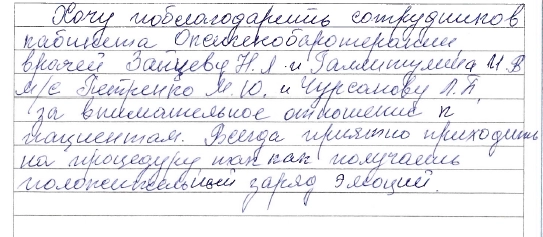 Хочу поблагодарить сотрудников
кабинета Оксигенобаротерапии
врачей Зайцеву Н.А. и Галлитулина И.В
м/с Петренко М.Ю. и Чурсанову Л.П.
за внимательное отношение к
пациентам. Всегда приятно приходить
на процедуру так как получаешь
положительный заряд эмоций.